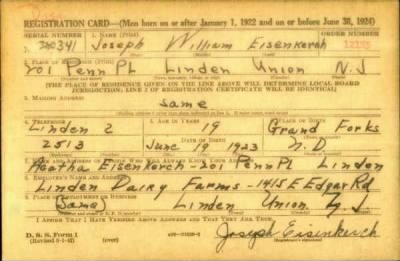 REGISTRATION CARD—(Men born on or after January 1, 1922 and on or before June 30, 1924)
SERIAL NUMBER 1. NAME (Print) ORDER NUMBER
341 Joseph William Eisenkerch 12195
2. PLACE OF RESIDENCE (Print)
201 Penn PL Linden Union N.J
[THE PLACE OF RESIDENCE GIVEN ON THE LINE ABOVE WILL DETERMINE LOCAL BOARD
JURISDICTION; LINE 2 OF REGISTRATION CERTIFICATE WILL BE IDENTICAL]
3. MAILING ADDRESS
same
4. TELEPHONE 5. AGE IN YEARS 6. PLACE OF BIRTH
Linden 2 19 Grand Forks
2513 June 19 1923 N.D.
7. NAME AND ADDRESS OF PERSON WHO WILL ALWAYS KNOW YOUR ADDRESS
Agatha Eisenkerch - 201 Penn Pl Linden
8. EMPLOYER'S NAME AND ADDRESS
Linden Dairy Farms - 1415 E Edgar Rd
9. PLACE OF EMPLOYMENT OR BUSINESS
(Same) Linden Union N.J
I AFFIRM THAT I HAVE VERIFIED ABOVE ANSWERS AND THAT THEY ARE TRUE.
D. S. S. Form 1
(over) Joseph Eisenkerch